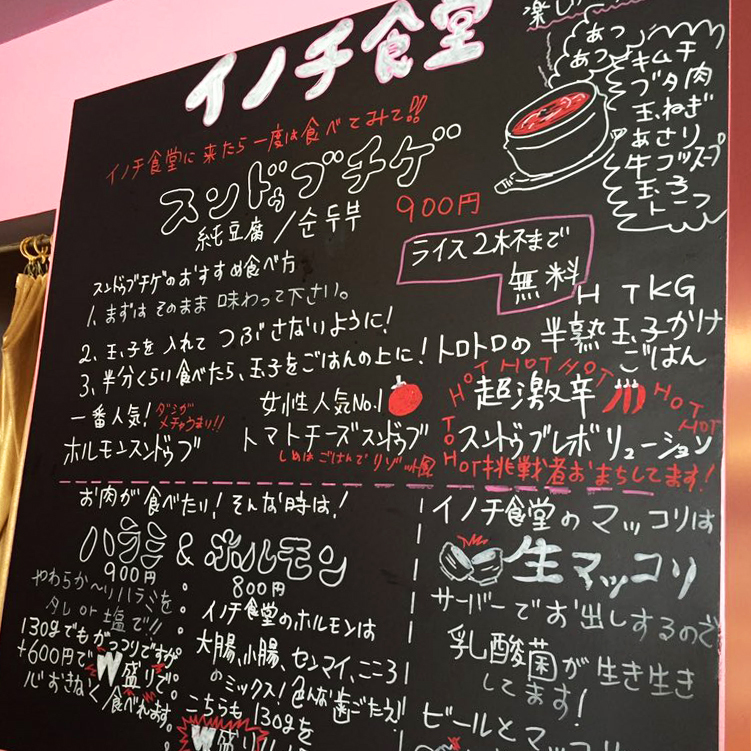 イノチ食堂
楽し
イノチ食堂に来たら一度は食べてみて!!
スンドゥブチゲ
純豆腐/순두부
900円
あつ
あつ
キムチ
ブタ肉
玉ねぎ
あさり
牛コツスープ
玉子
トーフ
ライス2杯まで
無料
スンドゥブチゲのおすすめ食べ方
1、まずはそのまま味わって下さい。
2、玉子を入れてつぶさないように!
3、半分くらい食べたら、玉子をごはんの上に!トロトロの半熟玉子かけ
ごはん
H TKG
一番人気!
ダシが
メチャうまい!!
ホルモンスンドゥブ
女性人気No.1
トマトチーズスンドゥブ
しめはごはんでリゾット風
HOT HOT HOT HOT HOT
超激辛
TO HOT
スンドゥブレボリューション
挑戦者おまちしてます!
お肉が食べたい!そんな時は!
ハラミ & ホルモン
900円
800円
やわらか〜いハラミを
タレor塩で!!
130gでもがっつりですが
+600円でW盛りで。
心おきなく食べれます。
イノチ食堂のホルモンは
大腸、小腸、センマイ、こころ
のミックス!色んな歯ごたえ!
こちらも130gを
W盛り
イノチ食堂のマッコリは
生マッコリ
サーバーでお出しするので
乳酸菌が生き生き
してます!
ビールとマッコ